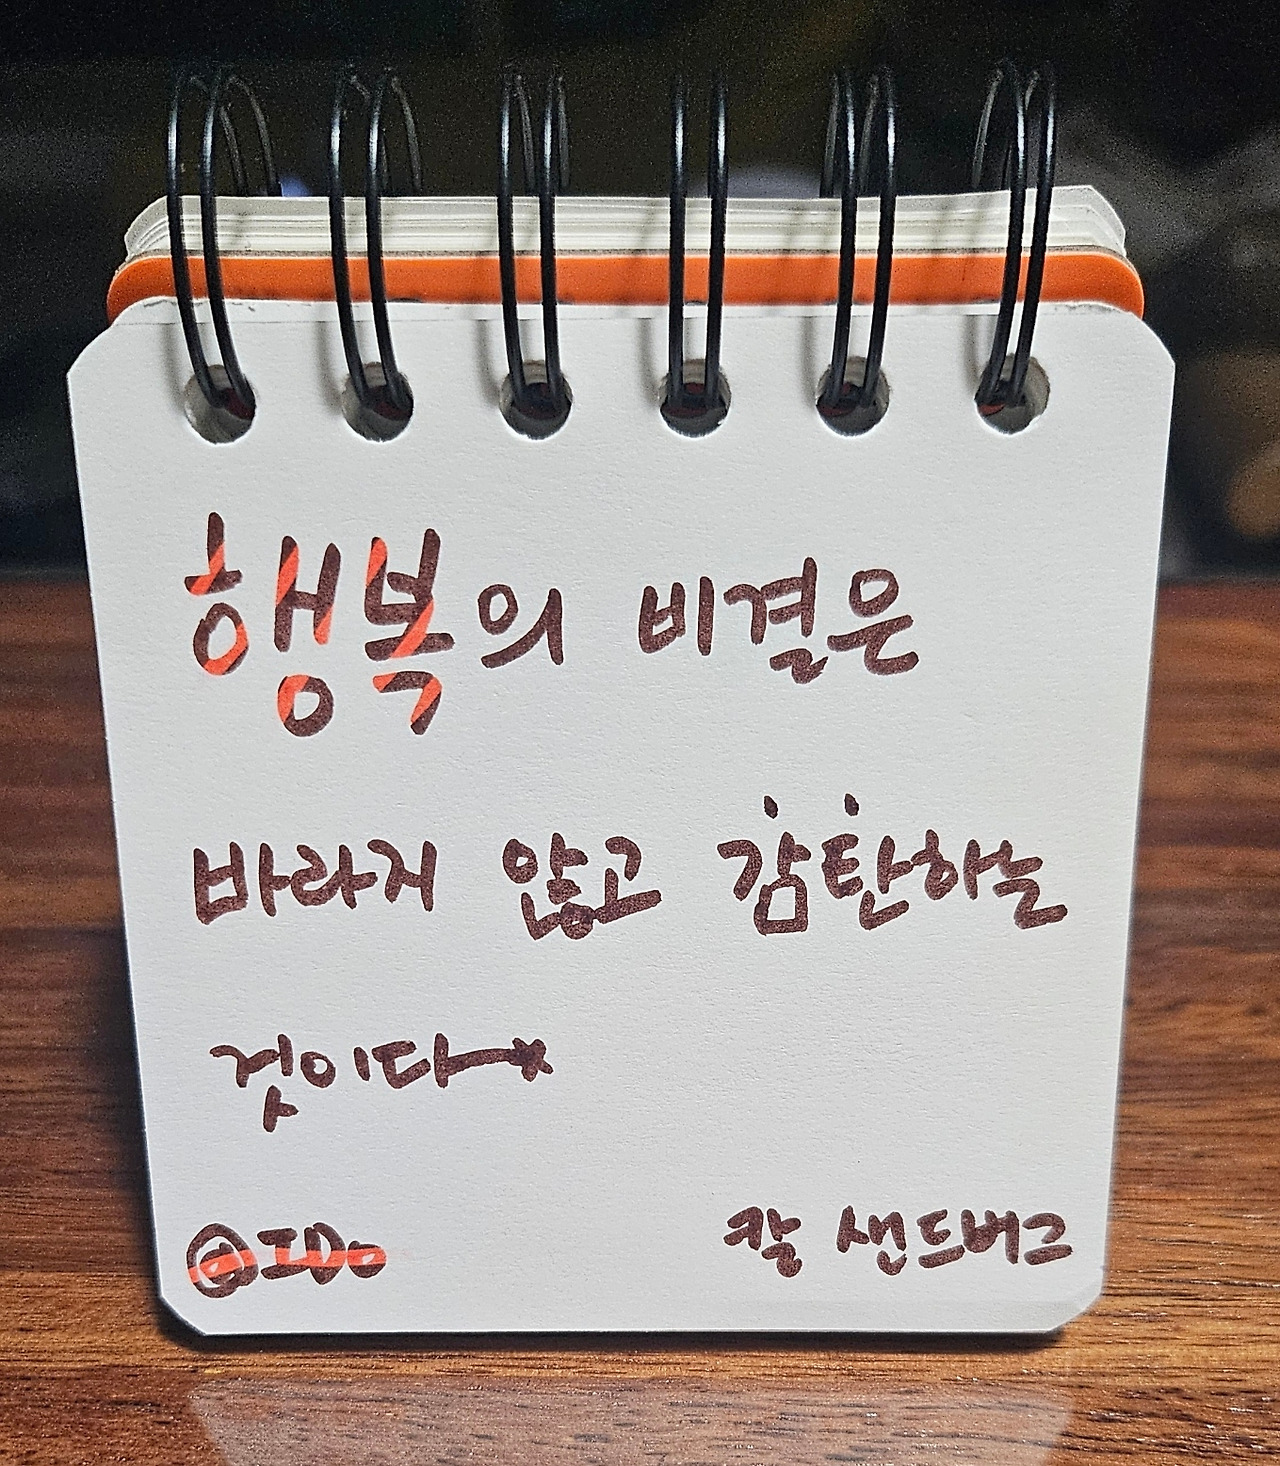 행복의 비결은
바라지 않고 감탄하는
것이다*
@IDo
칼 샌드버그